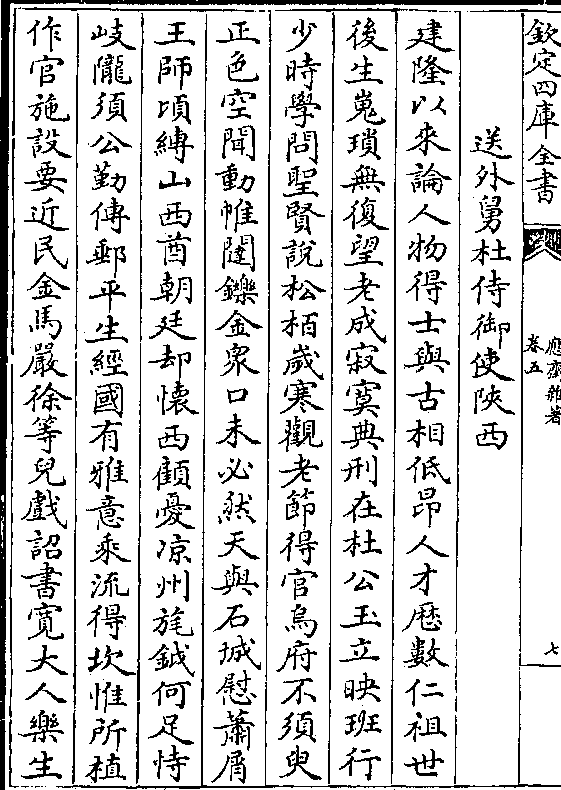 欽定四庫全書
應齋雜著
卷五
七
送外舅杜侍御使陝西
建隆以來論人物得士與古相低昂人才厯數仁祖世
後生嵬瑣無復望老成寂寞典刑在杜公玉立映班行
少時學問聖賢說松栢嵗寒觀老節得官烏府不須臾
正色空聞動帷闥鑠金衆口未必然天與石城慰蕭屑
王師頃縛山西酋朝廷却懐西顧憂凉州旄鉞何足恃
岐隴須公勤傳郵平生經國有雅意乘流得坎惟所植
作官施設要近民金馬嚴徐等兒戲詔書寛大人樂生